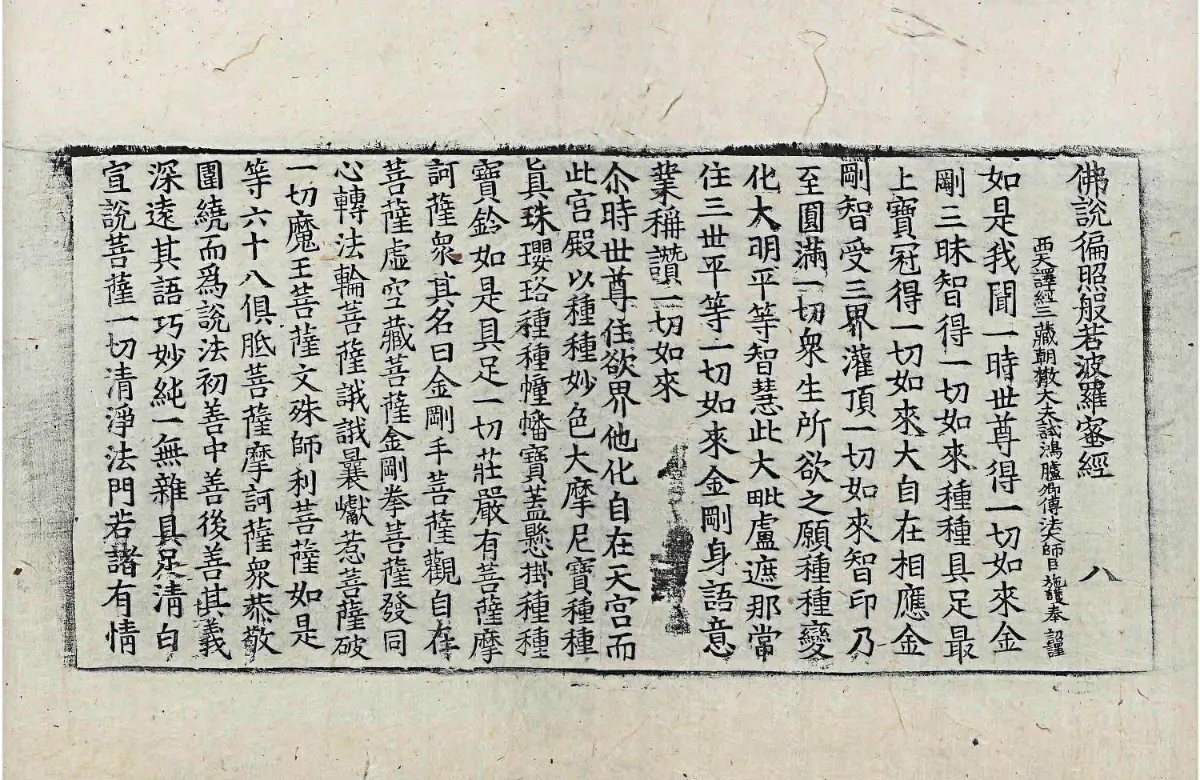 佛說徧照般若波羅蜜經 八
西天譯經三藏朝散大夫試鴻臚卿傳法大師臣施護奉 詔譯
如是我聞一時世尊得一切如來金
剛三昧智得一切如來種種具足最
上寶冠得一切如來大自在相應金
剛智受三界灌頂一切如來智印乃
至圓滿一切衆生所欲之願種種變
化大明平等智慧此大毗盧遮那常
住三世平等一切如來金剛身語意
業稱讚一切如來
尒時世尊住欲界他化自在天宮而
此宮殿以種種妙色大摩尼寶種種
眞珠瓔珞種種幢幡寶蓋懸掛種種
寶鈴如是具足一切莊嚴有菩薩摩
訶薩衆其名曰金剛手菩薩觀自在
菩薩虛空藏菩薩金剛拳菩薩發同
心轉法輪菩薩誐誐曩巘惹菩薩破
一切魔王菩薩文殊師利菩薩如是
等六十八俱胝菩薩摩訶薩衆恭敬
圍繞而爲說法初善中善後善其義
深遠其語巧妙純一無雜具足清白
宣說菩薩一切清淨法門若諸有情